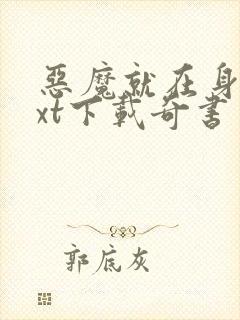 惡魔就在身
xt下載奇書
郭底灰